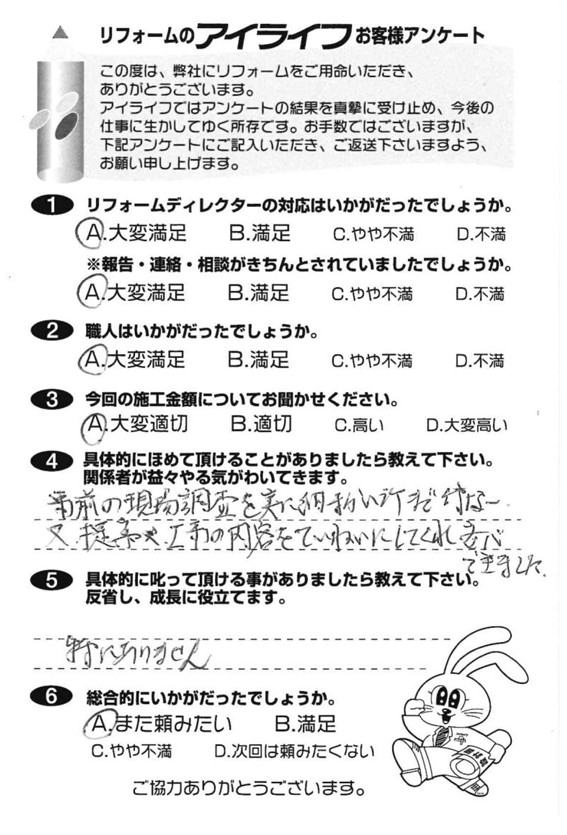 リフォームのアイライフお客様アンケート
この度は、弊社にリフォームをご用命いただき、
ありがとうございます。
アイライフではアンケートの結果を真摯に受け止め、今後の
仕事に生かしてゆく所存です。お手数ではございますが、
下記アンケートにご記入いただき、ご返送下さいますよう、
お願い申し上げます。
1 リフォームディレクターの対応はいかがだったでしょうか。
A.大変満足 B.満足 C.やや不満 D.不満
※報告・連絡・相談がきちんとされていましたでしょうか。
A.大変満足 B.満足 C.やや不満 D.不満
2 職人はいかがだったでしょうか。
A.大変満足 B.満足 C.やや不満 D.不満
3 今回の施工金額についてお聞かせください。
A.大変適切 B.適切 C.高い D.大変高い
4 具体的にほめて頂けることがありましたら教えて下さい。
関係者が益々やる気がわいてきます。
事前の現場調査を実に細かい所まで行な
又提案や工事の内容をていねいにしてくれ安心
できました。
5 具体的に叱って頂ける事がありましたら教えて下さい。
反省し、成長に役立てます。
特にありません
6 総合的にいかがだったでしょうか。
A.また頼みたい B.満足
C.やや不満 D.次回は頼みたくない
ご協力ありがとうございます。